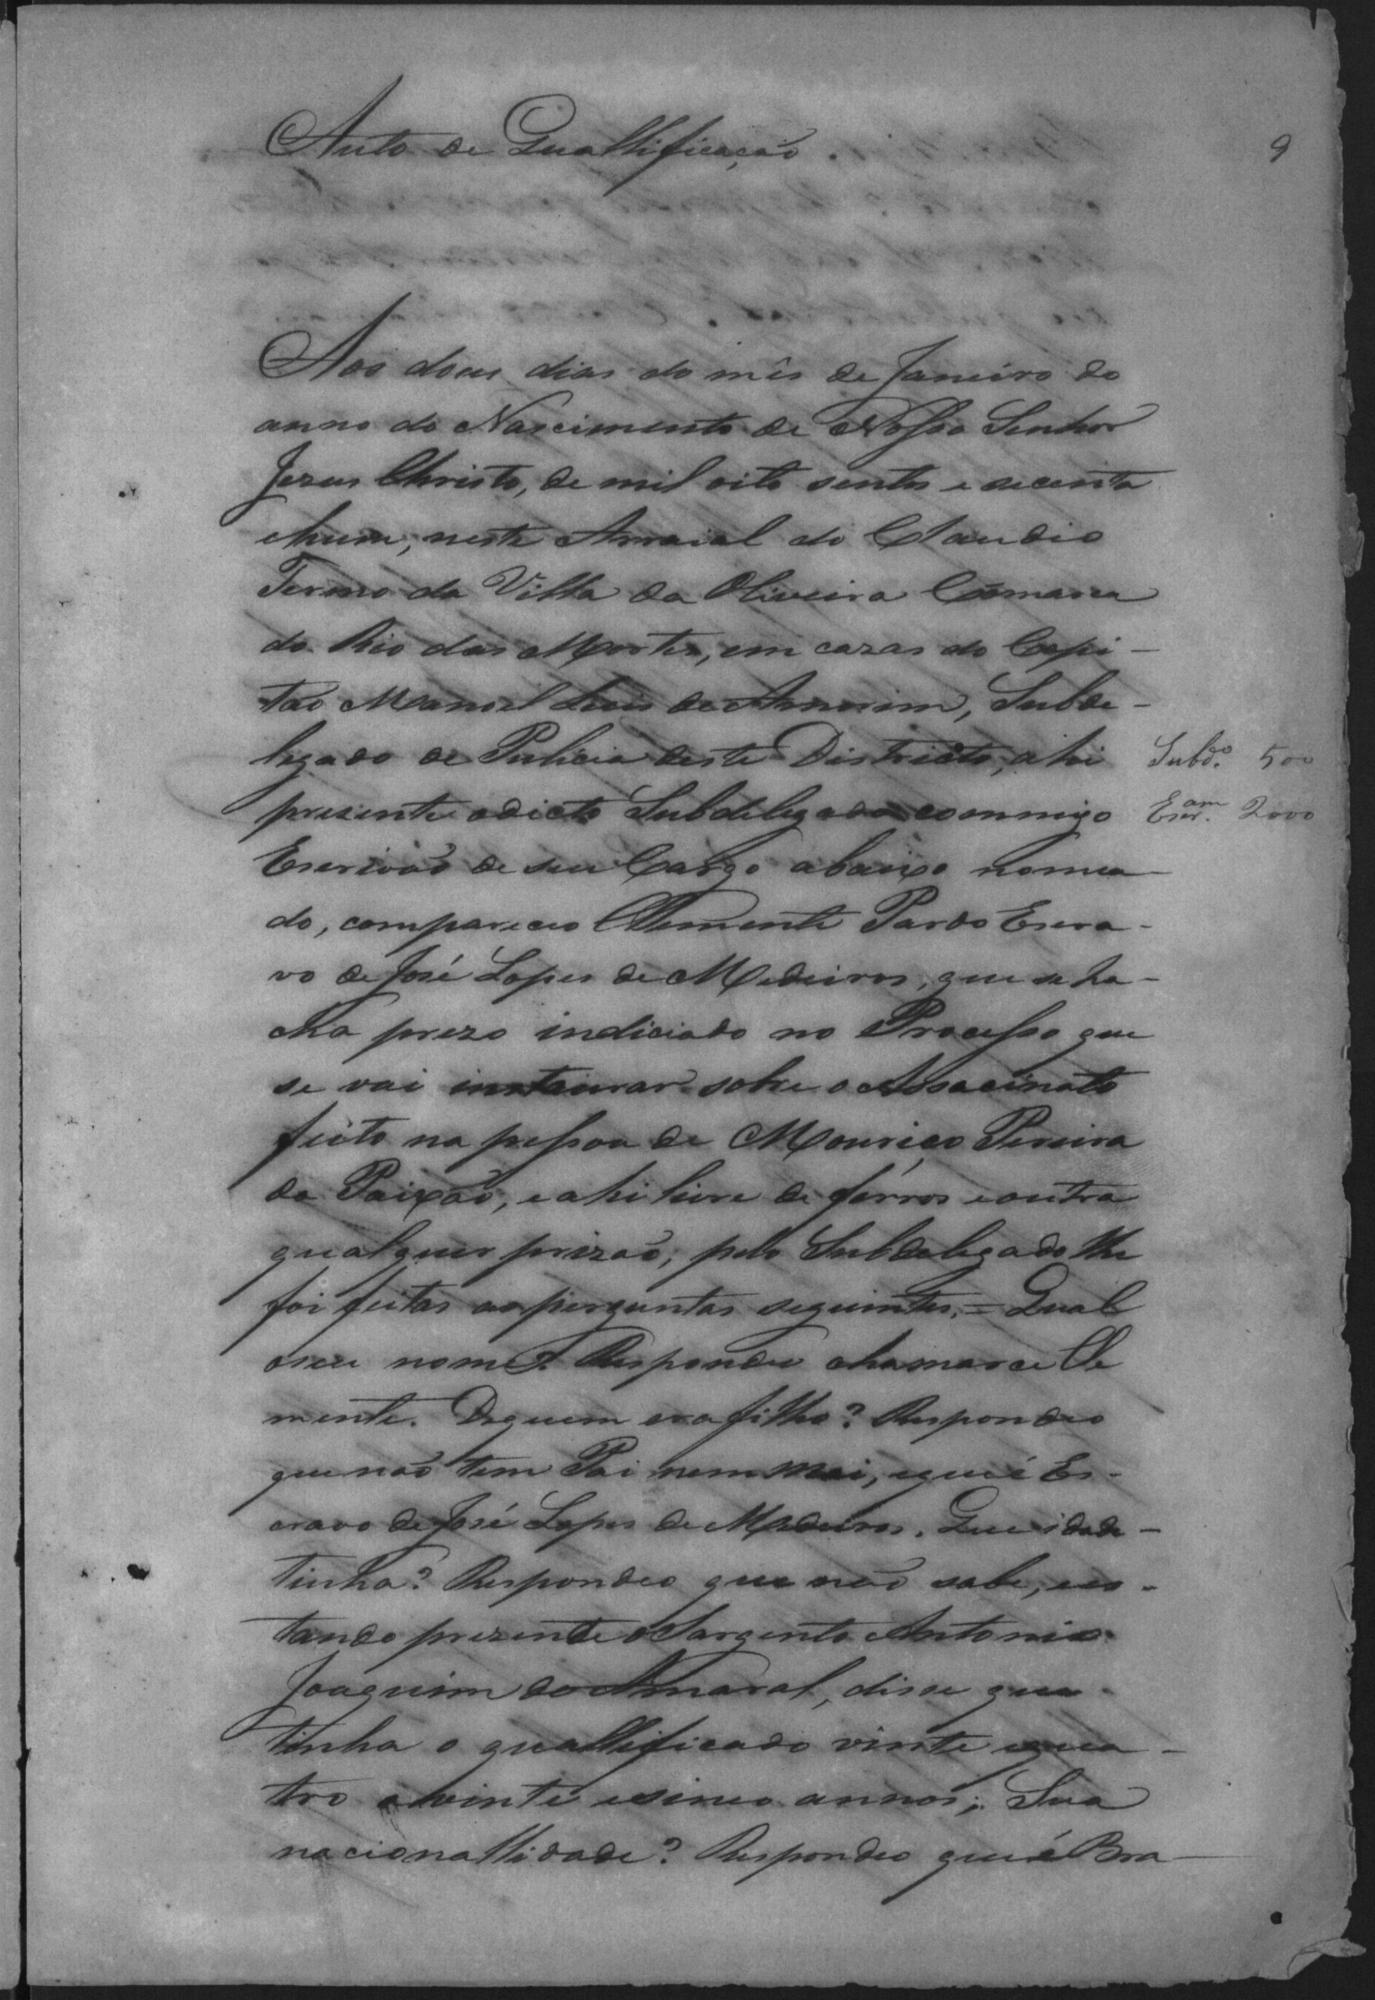 Auto de Quallificação.
9
Aos dous dias do mês de Janeiro do
anno do Nascimento de Nosso Senhor
Jezus Christo, de mil oito sentos e secenta
ehum, neste Arraial do Claudio
Termo da Villa da Oliveira Cómarca
do Rio das Mortes, em cazas do Capi-
tão Manoel Luis de Amorim, Subde-
legado de Pulicia deste Districto, ahi
Subdo. 500
prezente odicto Subdelegado commigo
Escram. 2000
Escrivão de seu Cargo abaixo nomea-
do, compareceo Clemente Pardo Escra-
vo de José Lopes de Medeiros, que se ha-
cha prezo indiciado no Processo que
se vai instaurar sobre o Assacinato
feito na pessoa de Mouriço Pereira
da Paixão, e ahi livre de férros e outra
qualquer prizão, pelo Subdelegado lhe
foi feitas as perguntas seguintes. = Qual
oseu nome? Respondeu chamarce Cle
mente. Dequem era filho? Respondeo
que não tem Pai nem Mai, e que é Es-
cravo de José Lopes de Medeiros. Que idade-
tinha? Respondeo que não sabe, ees-
tando prezente o Sargento Antonio
Joaquim do Amaral, disse que
tinha o quallificado vinte equa-
tro a vinte esinco annos; Sua
nacionallidade? Respondeo que é Bra-